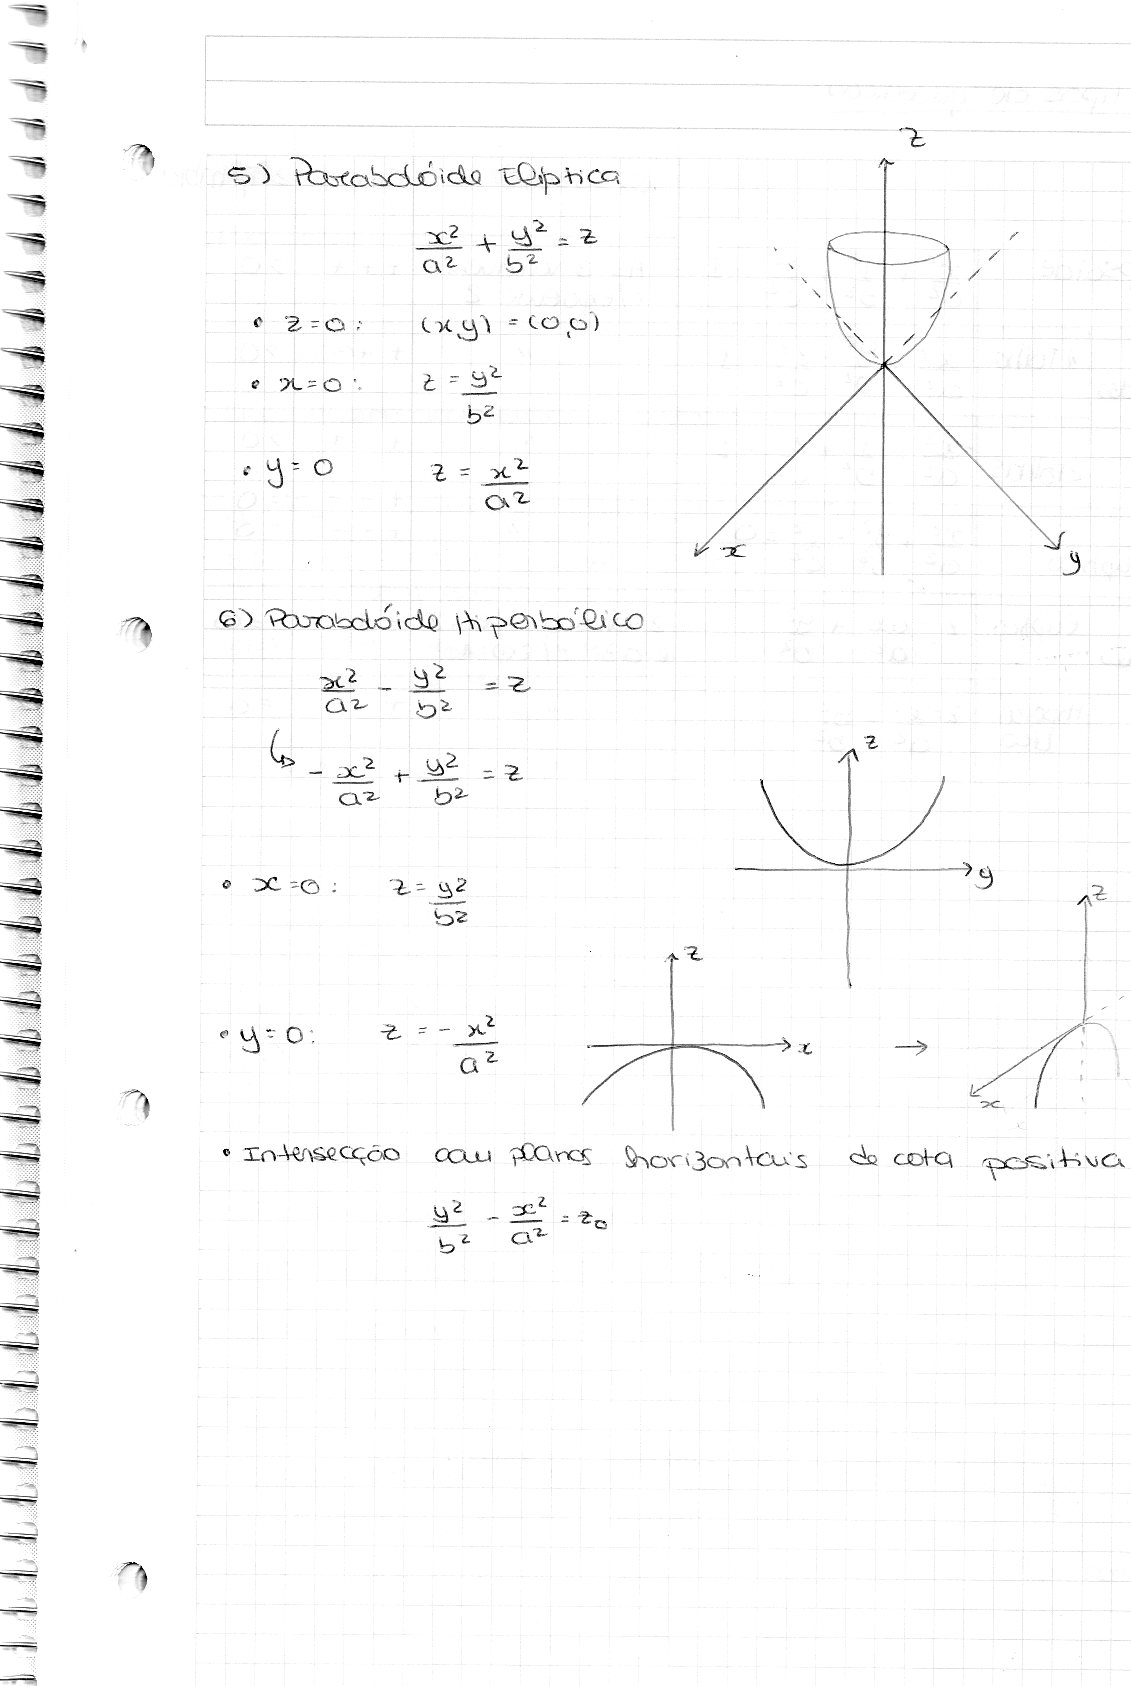 5) Parabolóide Elíptica
x²/a² + y²/b² = z
• z=0: (x,y) = (0,0)
• x=0: z = y²/b²
• y=0 z = x²/a²
z
x
y
6) Parabolóide Hiperbólico
x²/a² - y²/b² = z
↳ - x²/a² + y²/b² = z
• x=0: z = y²/b²
z
y
• y=0: z = - x²/a²
z
x
→
z
x
• Intersecção com planos horizontais de cota positiva
y²/b² - x²/a² = z₀